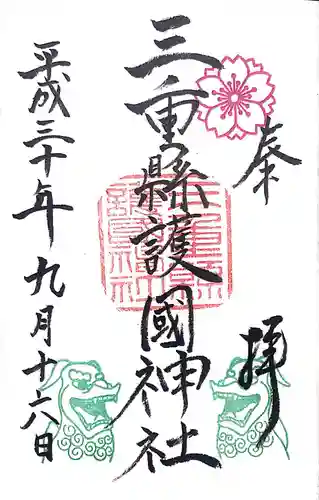 奉拝
三重縣護國神社
平成三十年九月十六日